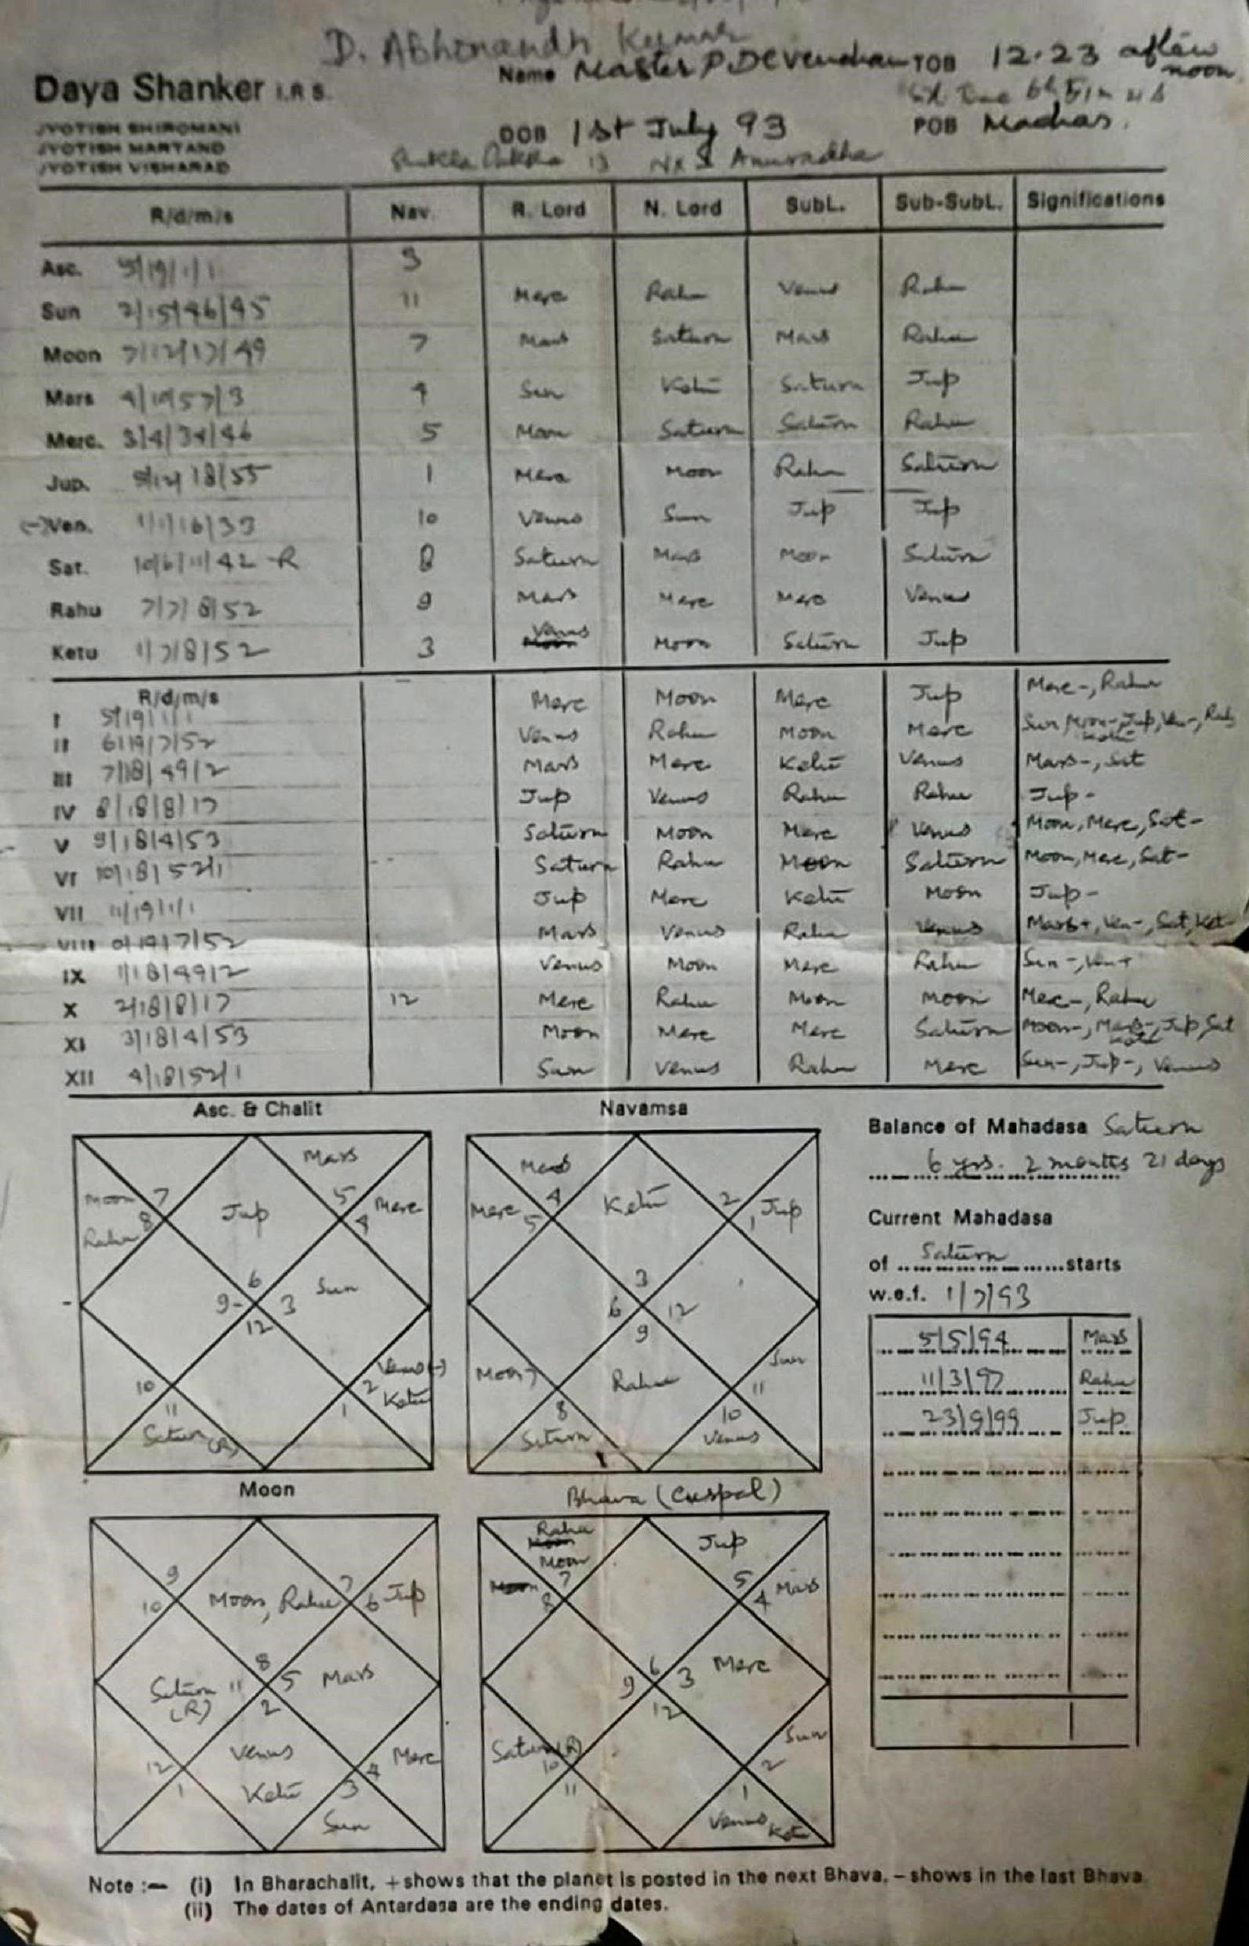 D. Abhinandh Kumar
Daya Shanker I.R.S.
Name Master P. Devendran TOB 12.23 after noon
JYOTISH SHIROMANI
JYOTISH MARTAND
JYOTISH VISHARAD
DOB 1st July 93 POB Madras.
Anuradha
R/d/m/s Nav. R. Lord N. Lord SubL. Sub-SubL. Significations
Asc. 5/19/1/1 3
Sun 2/15/46/45 11 Merc Rahu Venus Rahu
Moon 7/12/17/49 7 Mars Saturn Mars Rahu
Mars 4 Sun Ketu Saturn Jup
Merc. 3/4/34/46 5 Moon Saturn Saturn Rahu
Jup. 5/12/18/55 1 Merc Moon Rahu Saturn
(-)Ven. 1/1/16/33 10 Venus Sun Jup Jup
Sat. 10/6/11/42-R 8 Saturn Mars Moon Saturn
Rahu 7/7/8/52 9 Mars Merc Merc Venus
Ketu 1/7/8/52 3 Venus Moon Saturn Jup
R/d/m/s
I 5/19/1/1 Merc Moon Merc Jup Merc-, Rahu
II 6/19/7/52 Venus Rahu Moon Merc Sun, Moon-, Jup, Ven-, Rah, Ketu
III 7/18/49/2 Mars Merc Ketu Venus Mars-, Sat
IV 8/18/8/17 Jup Venus Rahu Rahu Jup-
V 9/18/4/53 Saturn Moon Merc Venus Moon, Merc, Sat-
VI 10/18/52/1 Saturn Rahu Moon Saturn Moon, Merc, Sat-
VII 11/19/1/1 Jup Merc Ketu Moon Jup-
VIII 0/19/7/52 Mars Venus Rahu Venus Mars+, Ven-, Sat, Ket
IX 1/18/49/2 Venus Moon Merc Rahu Sun-, Ven+
X 2/18/8/17 12 Merc Rahu Moon Moon Merc-, Rahu
XI 3/18/4/53 Moon Merc Merc Saturn Moon-, Mars-, Jup, Sat Ketu
XII 4/18/52/1 Sun Venus Rahu Merc Sun-, Jup-, Venus
Asc. & Chalit
Mars
Moon 7 Jup 5 Merc
Rahu 8 4
6 Sun
9- 3
12
10 Venus (-)
11 2 Ketu
Saturn (R) 1
Navamsa
Mars
4 Ketu 2 Jup
Merc 5 1
3
6 12
9
Moon 7 Rahu Sun
8 11
Saturn 10
Venus
Balance of Mahadasa Saturn
6 yrs. 2 months 21 days
Current Mahadasa
of Saturn starts
w.e.f. 1/7/93
5/5/94 Mars
11/3/97 Rahu
23/9/99 Jup
Moon
9 7
10 Moon, Rahu 6 Jup
8
Saturn 11 5 Mars
(R) 2
12 Venus 4 Merc
1 Ketu 3
Sun
Bhava (Cuspal)
Rahu Jup
Moon
7 5 Mars
8 4
6
9 3 Merc
12
Saturn (R) Sun
10 2
11 1
Venus Ketu
Note :— (i) In Bharachalit, + shows that the planet is posted in the next Bhava, – shows in the last Bhava.
(ii) The dates of Antardasa are the ending dates.